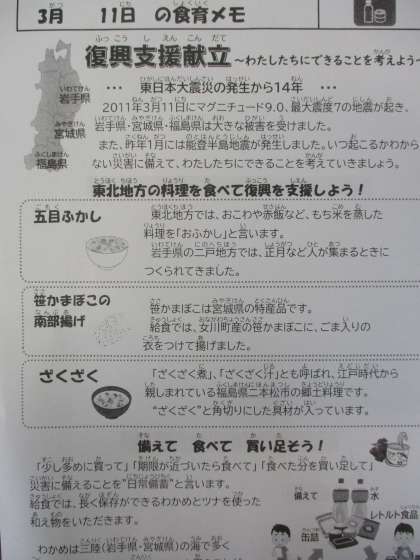 3月 11日 の食育メモ
復興支援献立 ～わたしたちにできることを考えよう～
岩手県
宮城県
福島県
･･･ 東日本大震災の発生から14年 ･･･
2011年3月11日にマグニチュード9.0、最大震度7の地震が起き、
岩手県・宮城県・福島県は大きな被害を受けました。
また、昨年1月には能登半島地震が発生しました。いつ起こるかわから
ない災害に備えて、わたしたちにできることを考えていきましょう。
東北地方の料理を食べて復興を支援しよう！
五目ふかし
東北地方では、おこわや赤飯など、もち米を蒸した
料理を「おふかし」と言います。
岩手県の二戸地方では、正月など人が集まるときに
つくられてきました。
笹かまぼこの
南部揚げ
笹かまぼこは宮城県の特産品です。
給食では、女川町産の笹かまぼこに、ごま入りの
衣をつけて揚げました。
ざくざく
「ざくざく煮」、「ざくざく汁」とも呼ばれ、江戸時代から
親しまれている福島県二本松市の郷土料理です。
“ざくざく”と角切りにした具材が入っています。
備えて 食べて 買い足そう！
「少し多めに買って」「期限が近づいたら食べて」「食べた分を買い足して」
災害に備えることを“日常備蓄”と言います。
給食では、長く保存ができるわかめとツナを使った
和え物をいただきます。
わかめは三陸（岩手県・宮城県）の海で多く
備えて
水
缶詰
レトルト食品